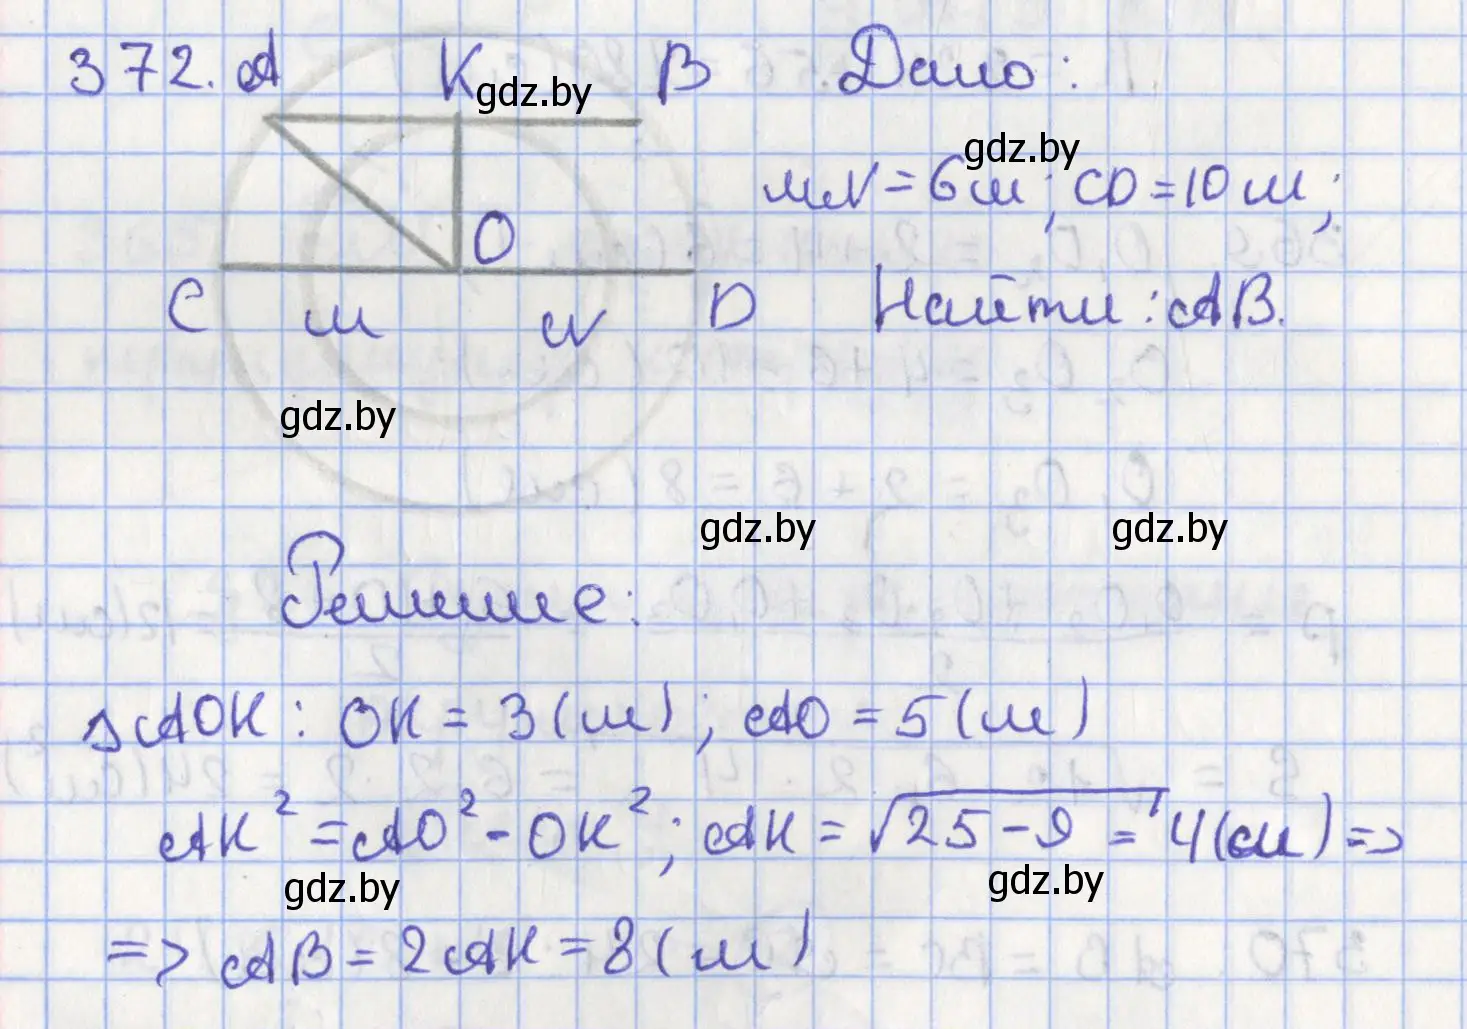 372. A K B Дано:
gdz.by
gdz.by
MN = 6 м; CD = 10 м;
O
C M N D Найти: AB.
gdz.by
gdz.by gdz.by
Решение:
△AOK: OK = 3 (м); AO = 5 (м)
AK² = AO² - OK²; AK = √25 - 9 = 4 (см) =>
gdz.by gdz.by
=> AB = 2AK = 8 (м)